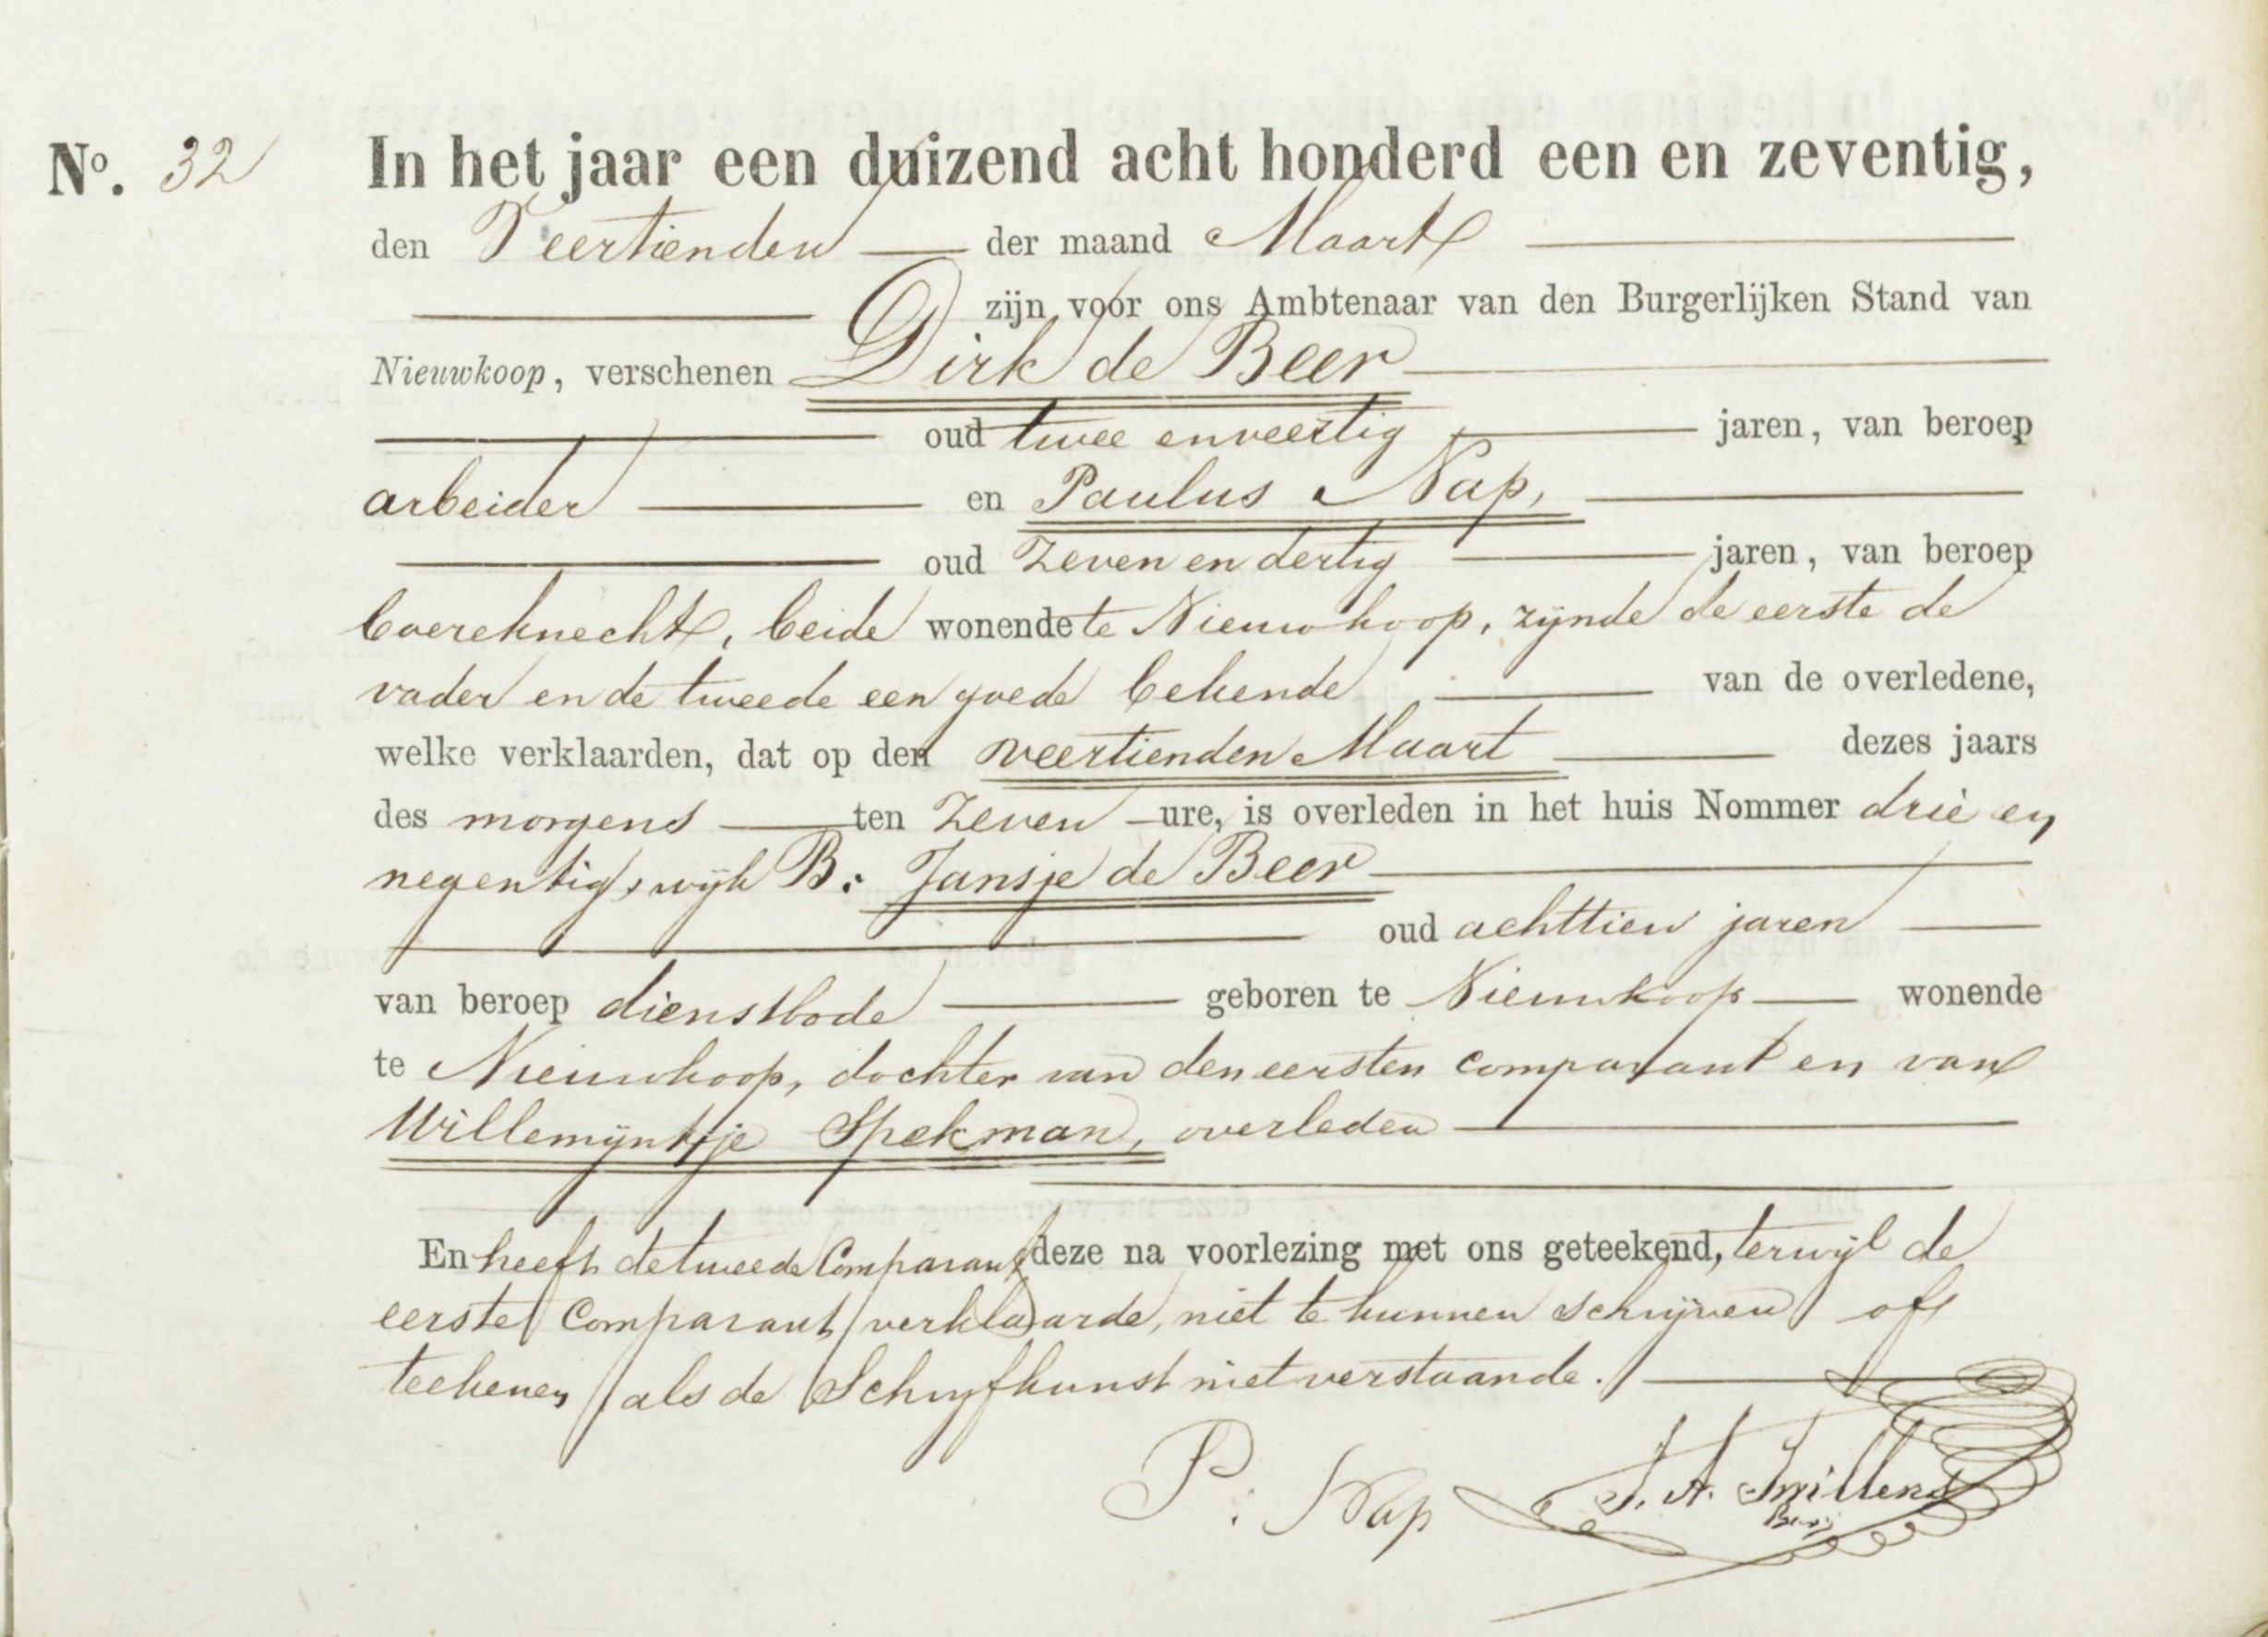 No. 32 In het jaar een duizend acht honderd een en zeventig,
den Veertienden der maand Maart
zijn voor ons Ambtenaar van den Burgerlijken Stand van
Nieuwkoop, verschenen Dirk de Beer
oud twee en veertig jaren, van beroep
arbeider en Paulus Nap,
oud zeven en dertig jaren, van beroep
boereknecht, beide wonende te Nieuwkoop, zijnde de eerste de
vader en de tweede een goede bekende van de overledene,
welke verklaarden, dat op den veertienden Maart dezes jaars
des morgens ten zeven ure, is overleden in het huis Nommer drie en
negentig, wijk B: Jansje de Beer
oud achttien jaren
van beroep dienstbode geboren te Nieuwkoop wonende
te Nieuwkoop, dochter van den eersten comparant en van
Willemijntje Spekman, overleden
En heeft de tweede Comparant deze na voorlezing met ons geteekend, terwijl de
eerste Comparant verklaarde, niet te kunnen schrijven of
teekenen als de Schrijfkunst niet verstaande.
P: Nap